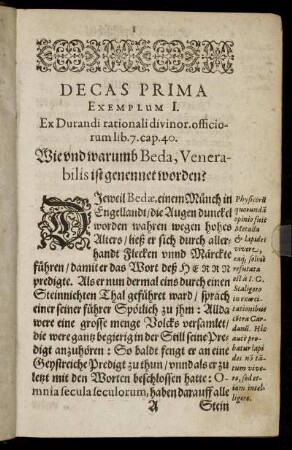 1
DECAS PRIMA
EXEMPLUM I.
Ex Durandi rationali divinor. officio-
rum lib. 7. cap. 40.
Wie vnd warumb Beda, Venera-
bilis ist genennet worden?
DJeweil Bedæ, einem Münch in
Engellandt / die Augen dunckel
worden wahren wegen hohes
Alters / ließ er sich durch aller-
handt Flecken vnnd Märckte
führen / damit er das Wort deß HERRN
predigte. Als er nun dermal eins durch einen
Steinnichten Thal geführet ward / sprach
einer seiner führer Spötlich zu jhm: Allda
were eine grosse menge Volcks versamlet /
die were gantz begierig in der Still seine Pre-
digt anzuhören: So baldt fengt er an eine
Geystreiche Predigt zu thun / vnnd als er zu
letzt mit den Worten beschlossen hatte: O-
mnia secula seculorum, haben darauff alle
A Stein
Physicorū
quorundā
opinio fuit
Metalla
& lapides
vivere,
eaq; solide
refutata
est à I. C.
Scaligero
in exerci-
tationibus
cõtra Car-
danũ. Hìc
autẽ pro-
batur lapi
des nõ tã-
tum vive-
re, sed et-
iam intel-
ligere.